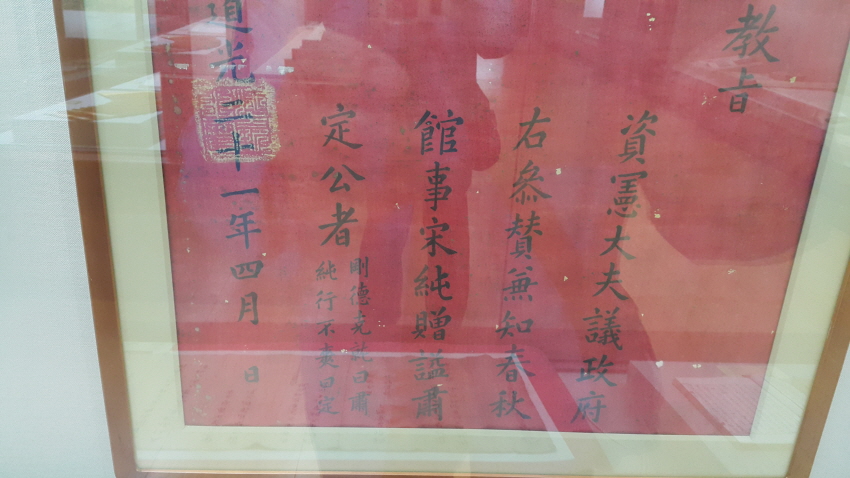 教旨
資憲大夫議政府
右叅賛兼知春秋
館事宋純贈諡肅
定公者
剛德克就曰肅
純行不爽曰定
道光二十一年四月　日